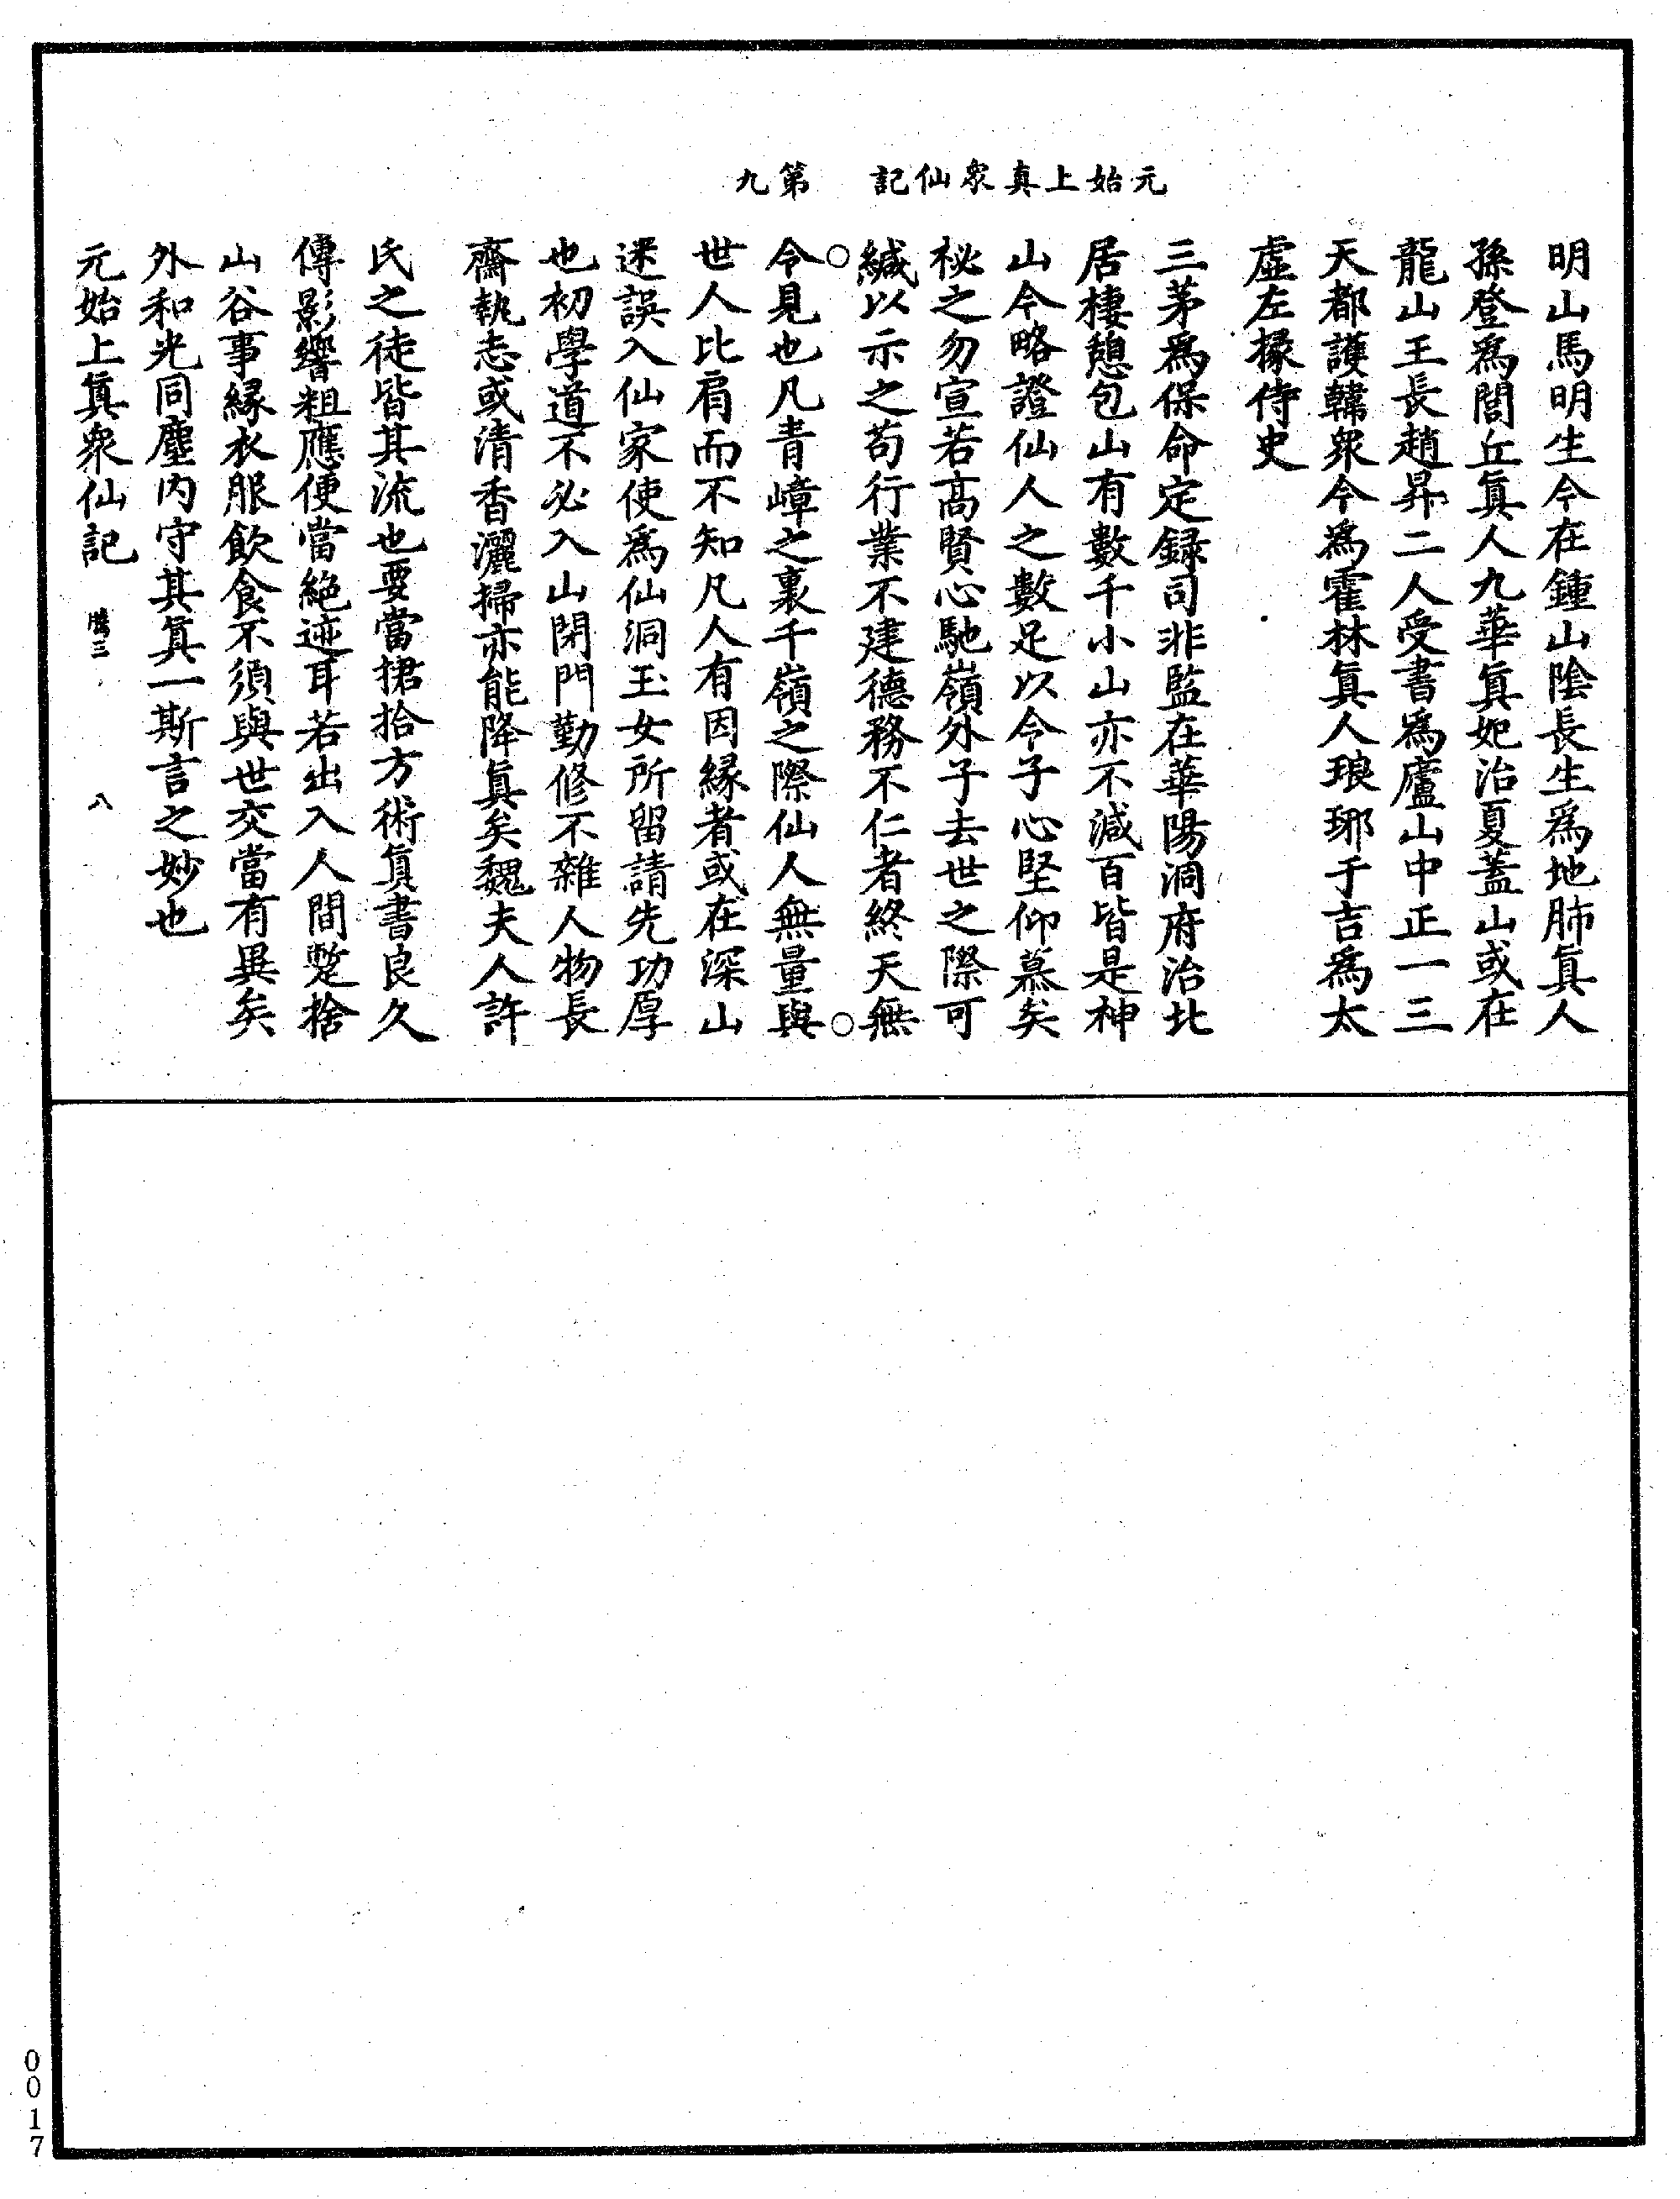 元始上真眾仙記　第九
明山馬明生今在鍾山陰長生為地肺真人
孫登為閬丘真人九華真妃治夏蓋山或在
龍山王長趙昇二人受書為廬山中正一三
天都護韓眾今為霍林真人琅琊于吉為太
虛左掾侍史
三茅為保命定録司非監在華陽洞府治北
居棲憩包山有數千小山亦不減百皆是神
山今略證仙人之數足以令子心堅仰慕矣
秘之勿宣若高賢心馳嶺外子去世之際可
緘以示之苟行業不建德務不仁者終天無
○令見也凡青嶂之裏千嶺之際仙人無量與○
世人比肩而不知凡人有因緣者或在深山
迷誤入仙家使為仙洞玉女所留請先功厚
也初學道不必入山閉門勤修不雜人物長
齋執志或清香灑掃亦能降真矣魏夫人許
氏之徒皆其流也要當捃拾方術真書良久
傳影響粗應便當絕迹耳若出入人間蹔捨
山谷事緣衣服飲食不須與世交當有異矣
外和光同塵内守其真一斯言之妙也
元始上真眾仙記　騰三　八
0017